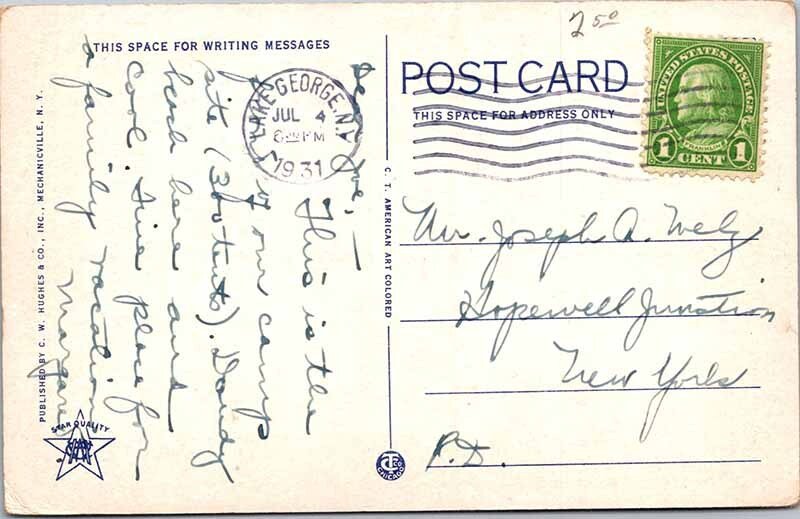 2 50
THIS SPACE FOR WRITING MESSAGES
POST CARD
THIS SPACE FOR ADDRESS ONLY
UNITED STATES POSTAGE
FRANKLIN
1 CENT 1
LAKE GEORGE, N.Y.
JUL 4
PM
1931
Dear Joe, —
This is the
of our camp
site (300 tents). Dandy
beach here and
cool. Fine place for
a family vacation.
Margaret
Mr. Joseph A. Welz
Hopewell Junction
New York
R.D.
PUBLISHED BY C. W. HUGHES & CO., INC., MECHANICVILLE, N. Y.
C. T. AMERICAN ART COLORED
STAR QUALITY
CHICAGO